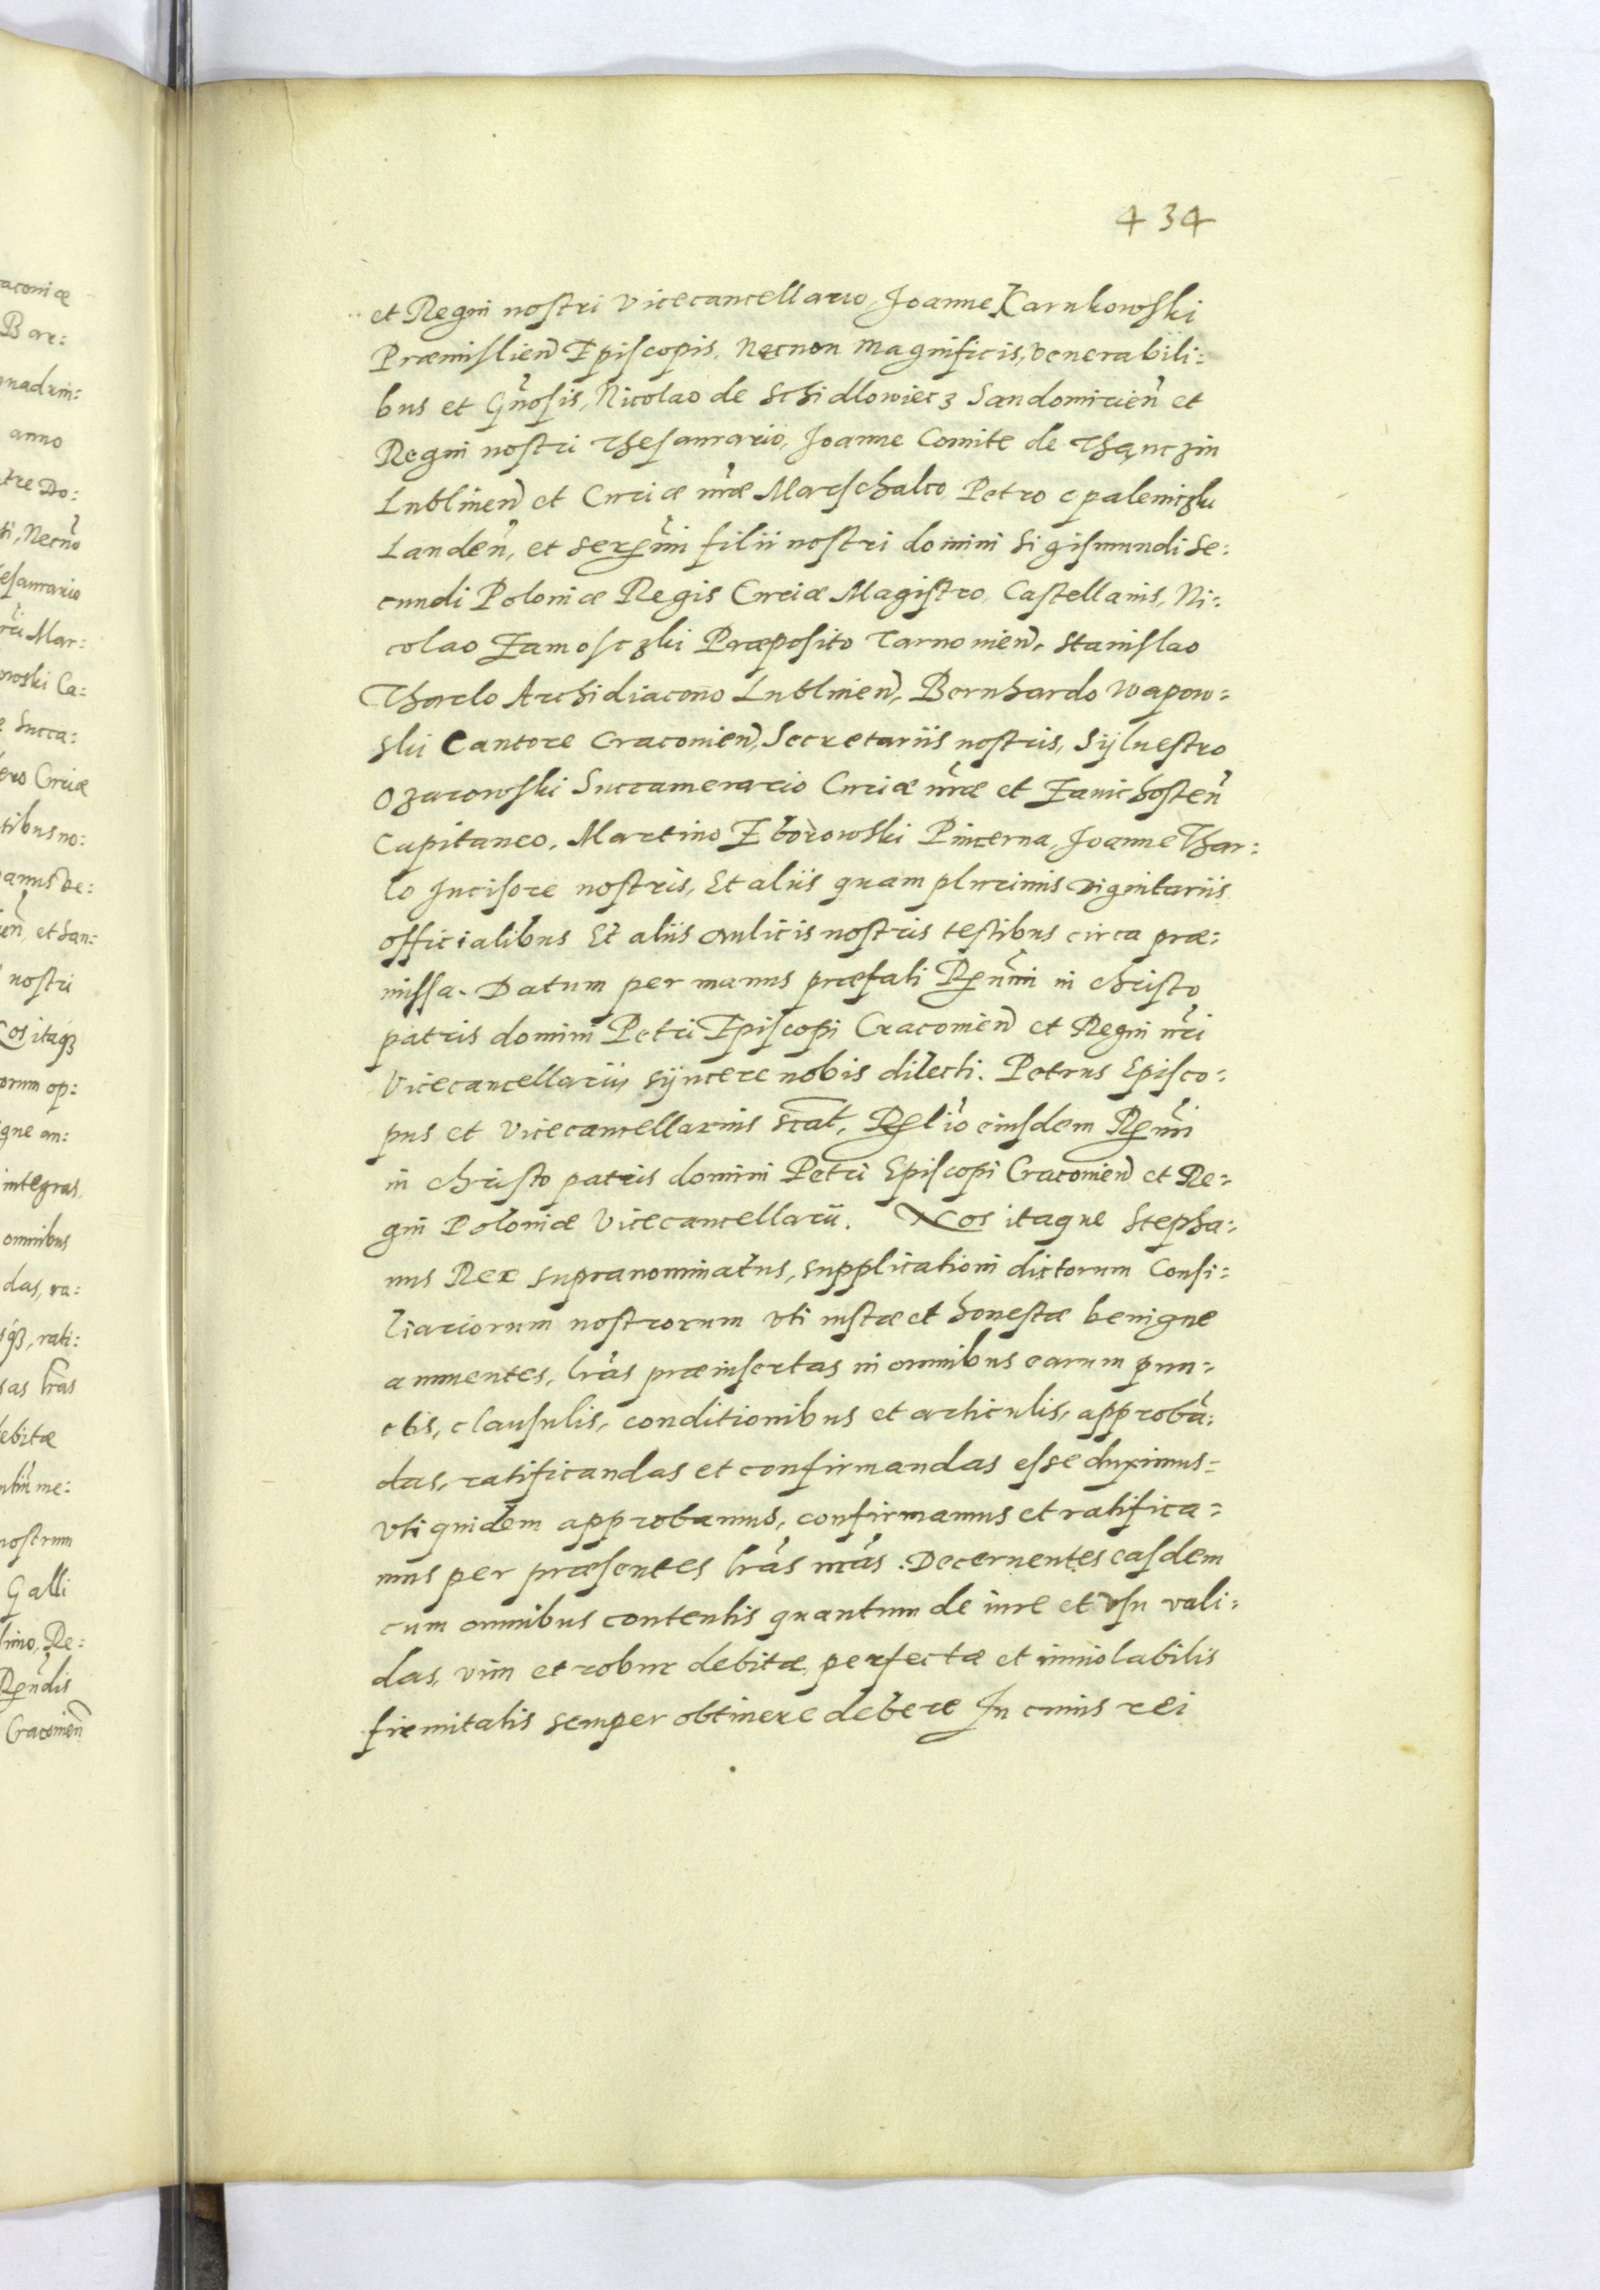 434
et Regni nostri Vicecancellario, Joanne Karnkowski
Præmislien̄ Episcopis, Necnon magnificis, Venerabili:
bus et Gn̄osis, Nicolao de Schidlowiecz Sandomirien̄ et
Regni nostri Thesaurario, Joanne Comite de Thanczin
Lublinen̄ et Curiæ nr̄æ Marschalco, Petro Opaleniczki
Landen̄, et seren̄mi filii nostri domini Sigismundi Se:
cundi Poloniæ Regis Curiæ Magistro, Castellanis, Ni:
colao Zamosczki Præposito Tarnovien̄, Stanislao
Tharlo Archidiacono Lublinen̄, Bernhardo Wapow:
ski Cantore Cracovien̄, Secretariis nostris, Sylvestro
Ozarowski Succamerario Curiæ nr̄æ et Zawichosten̄
Capitaneo, Martino Zborowski Pincerna, Joanne Thar:
lo Incisore nostris, Et aliis quam plurimis Dignitariis
officialibus Et aliis Aulicis nostris testibus circa præ:
missa. Datum per manus præfati Rn̄dmi in Christo
patris domini Petri Episcopi Cracovien̄ et Regni nr̄i
Vicecancellarii, syncere nobis dilecti. Petrus Episco:
pus et Vicecancellarius sc̄at, Rel̄io eiusdem Rn̄dmi
in Christo patris domini Petri Episcopi Cracovien̄ et Re:
gni Poloniæ Vicecancellarii. Nos itaque Stepha:
nus Rex supranominatus, supplicationi dictorum Consi:
liariorum nostrorum vti iustæ et honestæ benigne
annuentes, lr̄as præinsertas in omnibus earum pun:
ctis, clausulis, conditionibus et articulis, approbā:
das, ratificandas et confirmandas esse duximus:
vti quidem approbamus, confirmamus et ratifica:
mus per præsentes lr̄as nr̄as. Decernentes easdem
cum omnibus contentis quantum de iure et vsu vali:
das, vim et robur debitæ, perfectæ et inviolabilis
firmitatis semper obtinere debere In cuius rei